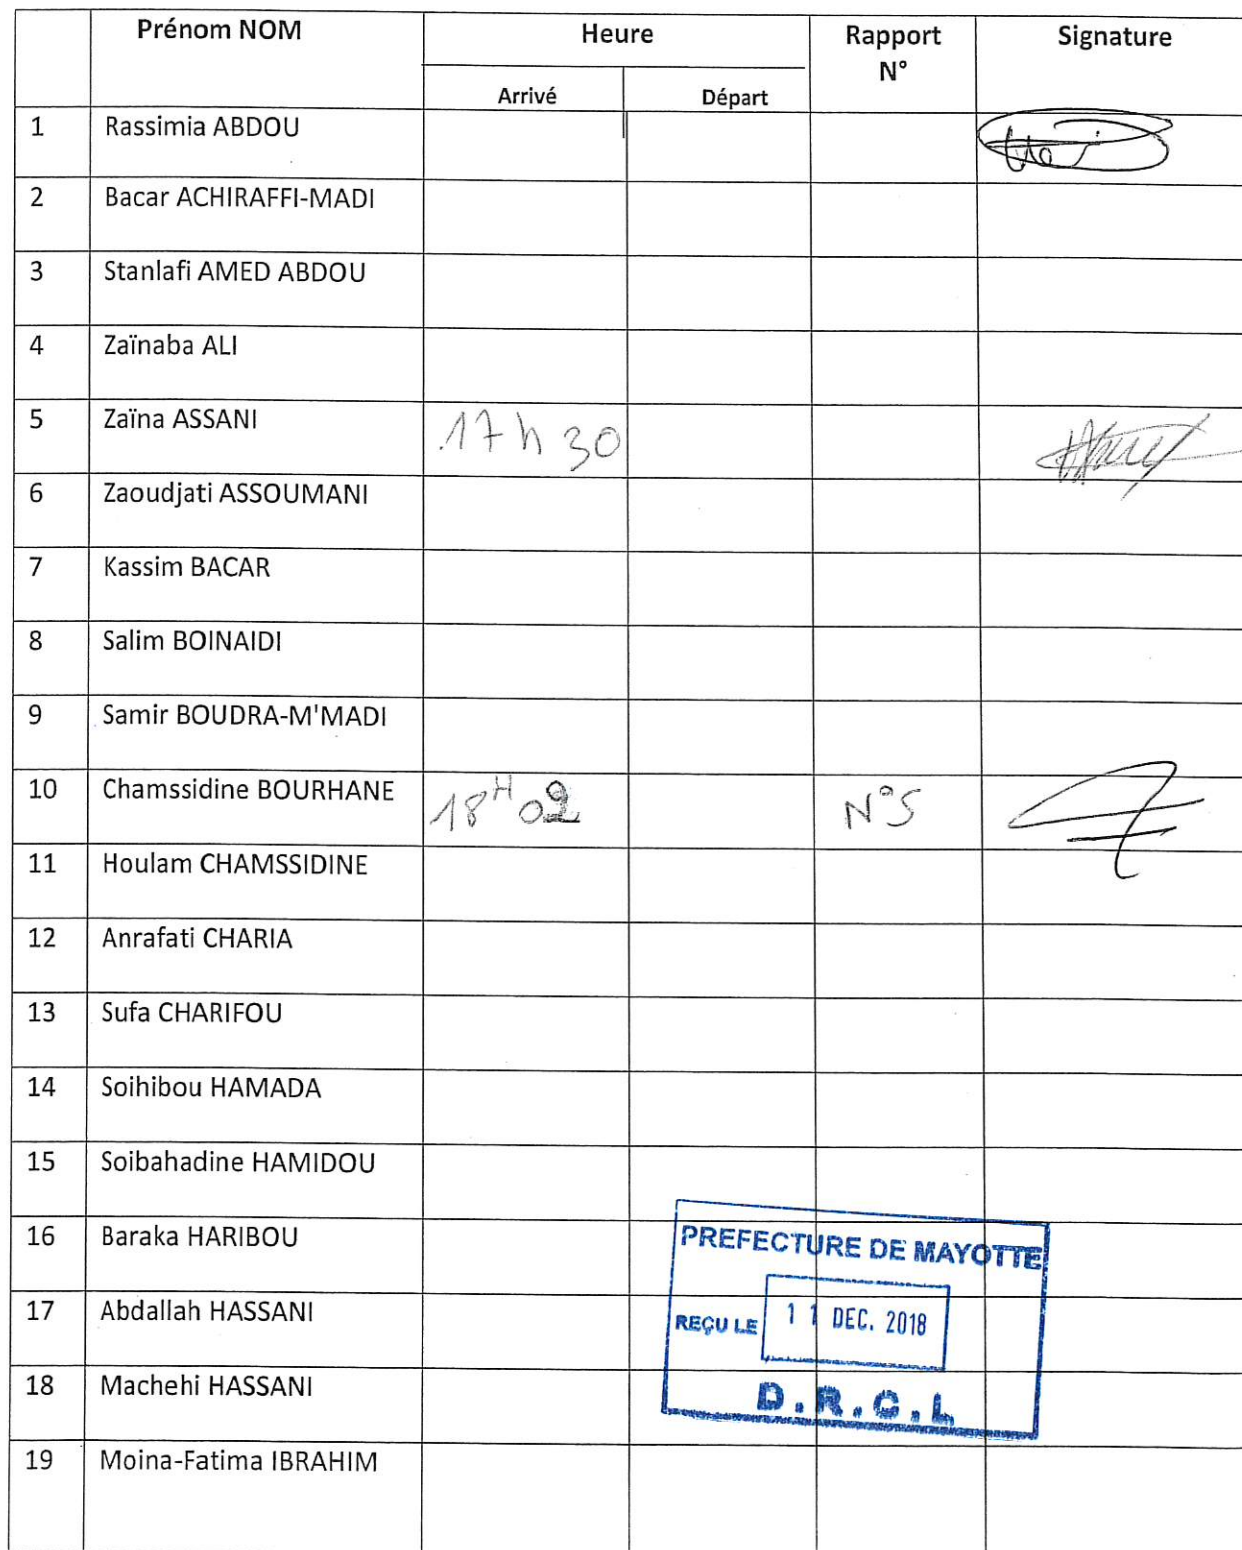 Prénom NOM Heure Rapport N° Signature
Arrivé Départ
1 Rassimia ABDOU
2 Bacar ACHIRAFFI-MADI
3 Stanlafi AMED ABDOU
4 Zaïnaba ALI
5 Zaïna ASSANI 17h30
6 Zaoudjati ASSOUMANI
7 Kassim BACAR
8 Salim BOINAIDI
9 Samir BOUDRA-M'MADI
10 Chamssidine BOURHANE 18H02 N°5
11 Houlam CHAMSSIDINE
12 Anrafati CHARIA
13 Sufa CHARIFOU
14 Soihibou HAMADA
15 Soibahadine HAMIDOU
16 Baraka HARIBOU
17 Abdallah HASSANI
18 Machehi HASSANI
19 Moina-Fatima IBRAHIM
PREFECTURE DE MAYOTTE
REÇU LE 11 DEC. 2018
D.R.C.L